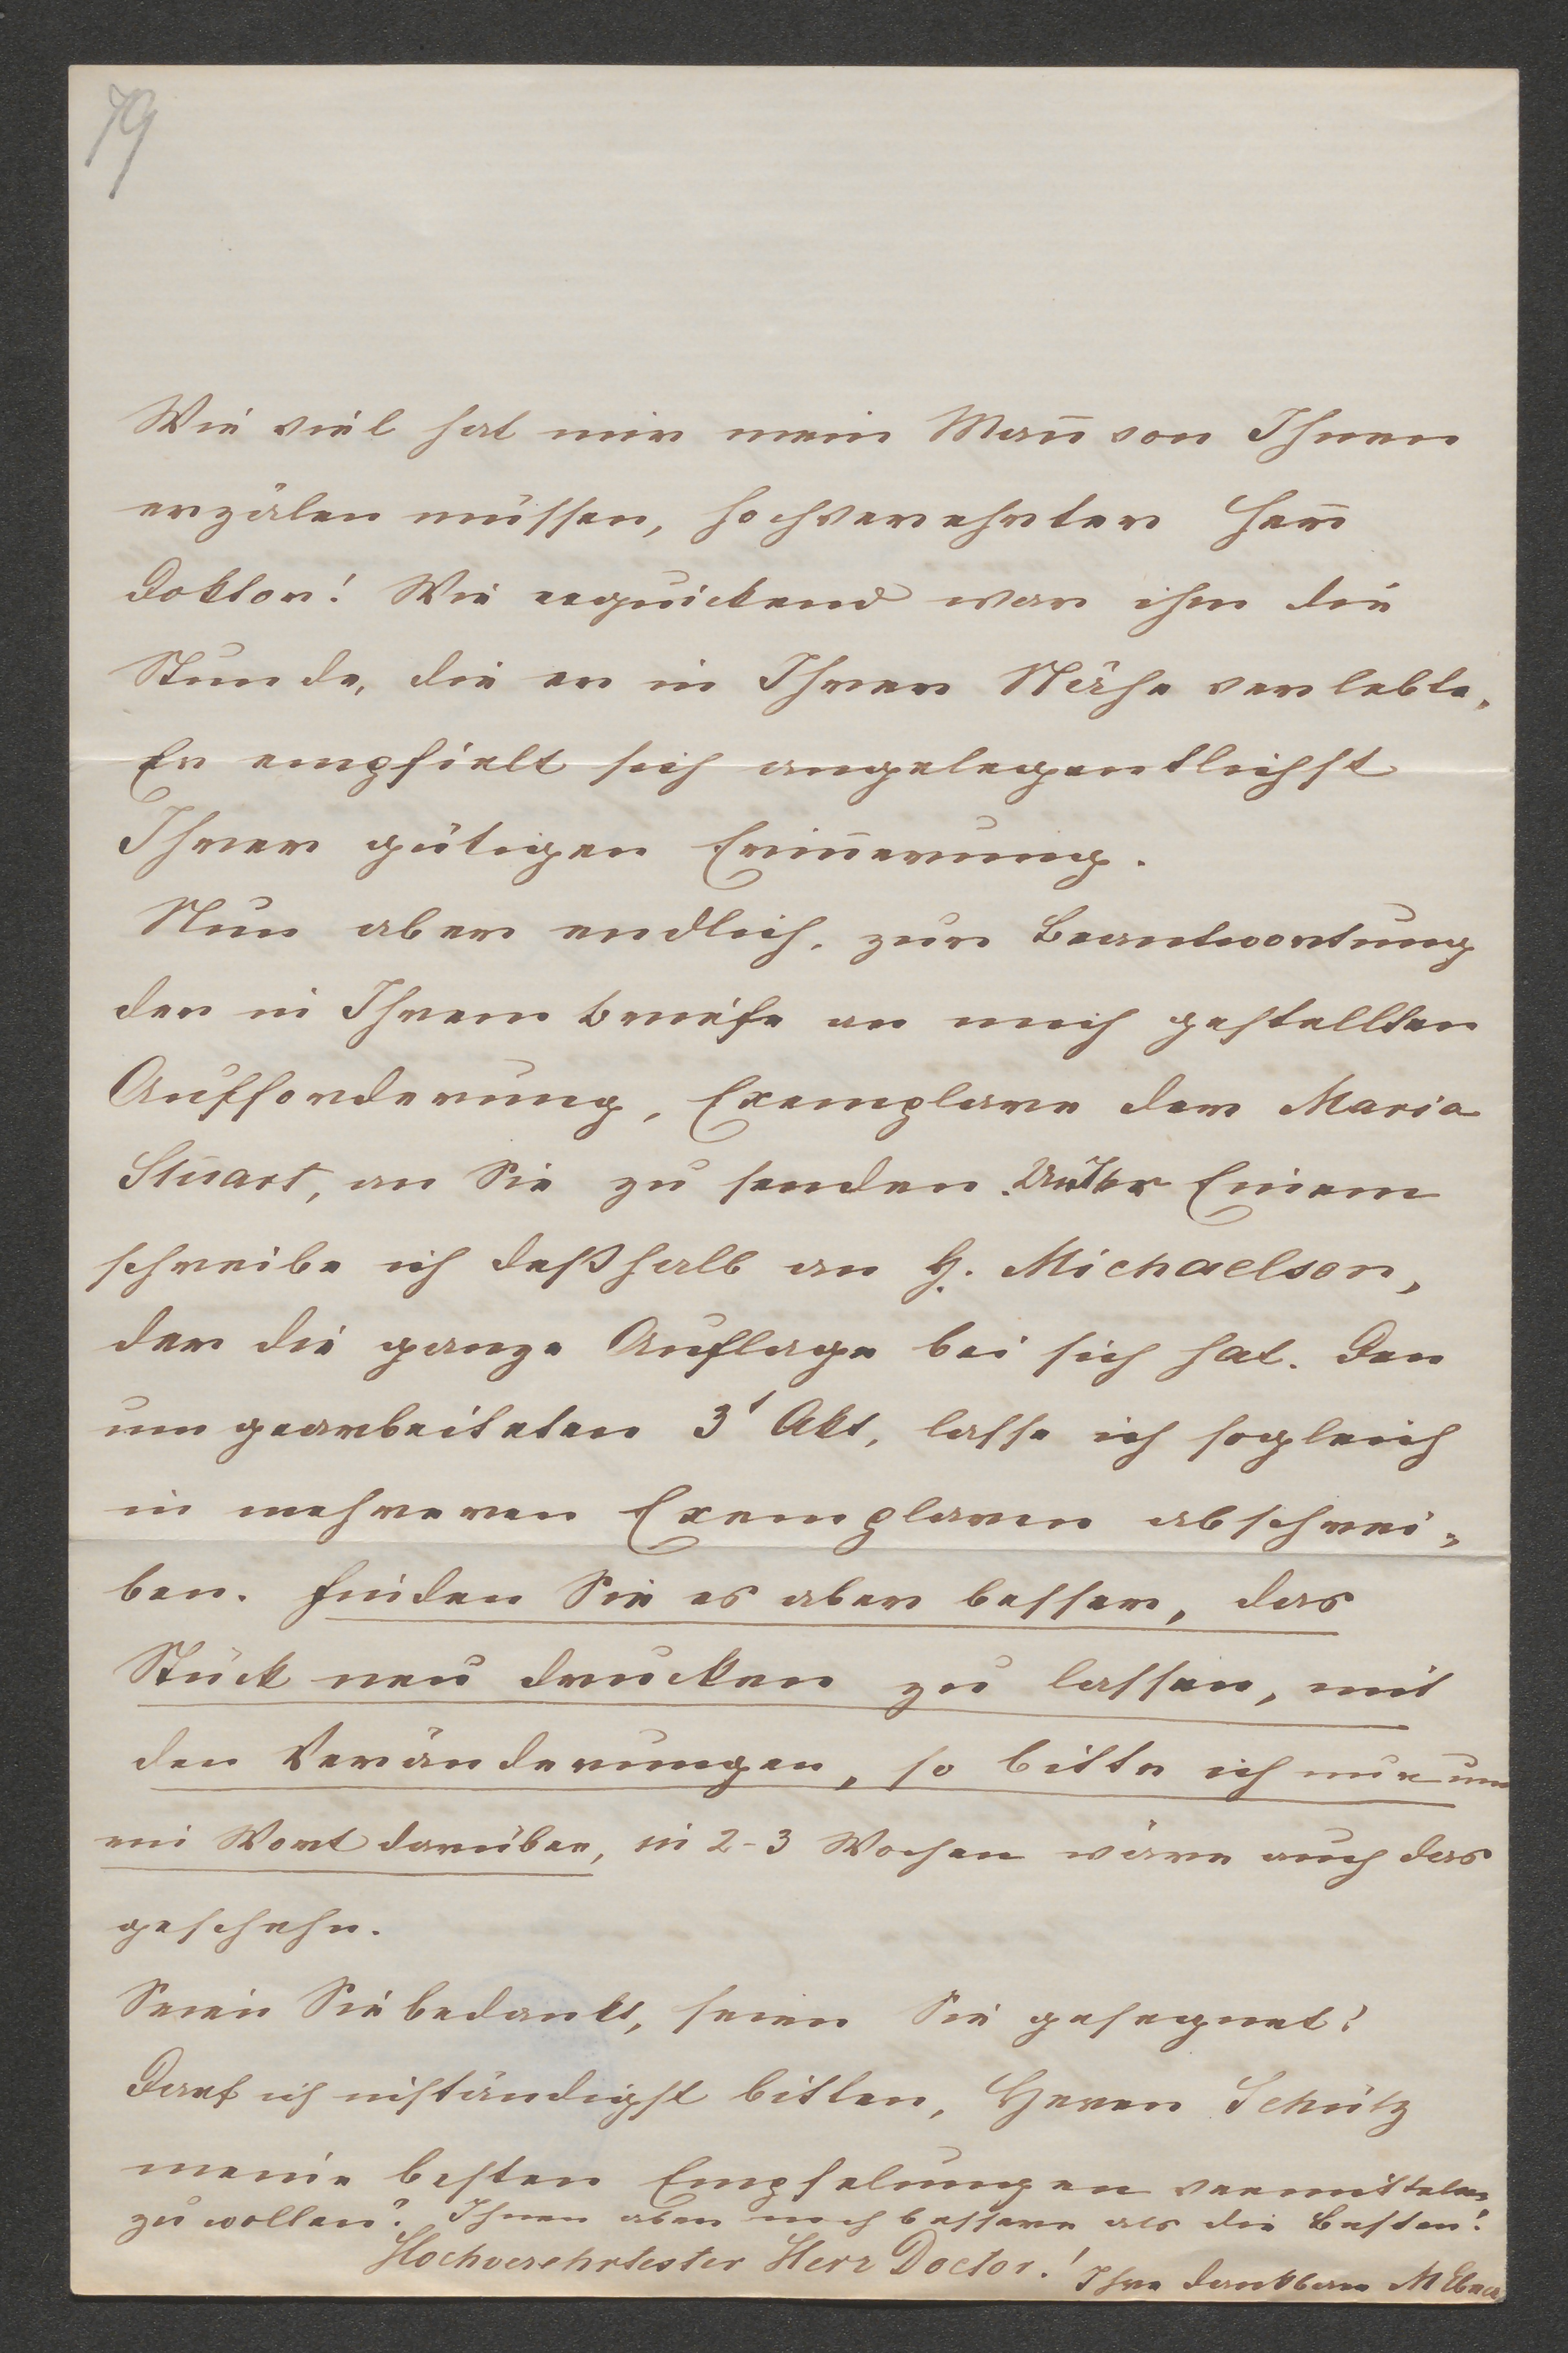 79
Wie viel hat mir mein Mañ von Ihnen
erzälen müssen, hochverehrter Herr
Doktor! Wie erquickend war ihm die
Stunde, die er in Ihrer Nähe verlebte.
Er empfielt sich angelegentlichst
Ihrer gütigen Eriñerung.
Nun aber endlich, zur Beantwortung
der in Ihrem Briefe an mich gestellten
Aufforderung, Exemplare der Maria
Stuart, an Sie zu senden. Unter Einem
schreibe ich deßhalb an H. Michaelson,
der die ganze Auflage bei sich hat. Den
umgearbeiteten 3t Akt, lasse ich sogleich
in mehreren Exemplaren abschrei-
ben. Finden Sie es aber besser, das
Stück neu drucken zu lassen, mit
den Veränderungen, so bitte ich nur um
ein Wort darüber, in 2-3 Wochen wäre auch das
geschehn.
Seien Sie bedankt, seien Sie gesegnet!
Darf ich inständigst bitten, Herrn Schütz
meine besten Empfelungen vermitteln
zu wollen? Ihnen aber noch bessere als die Besten!
Hochverehrtester Herr Doctor! Ihre dankbare M Ebner